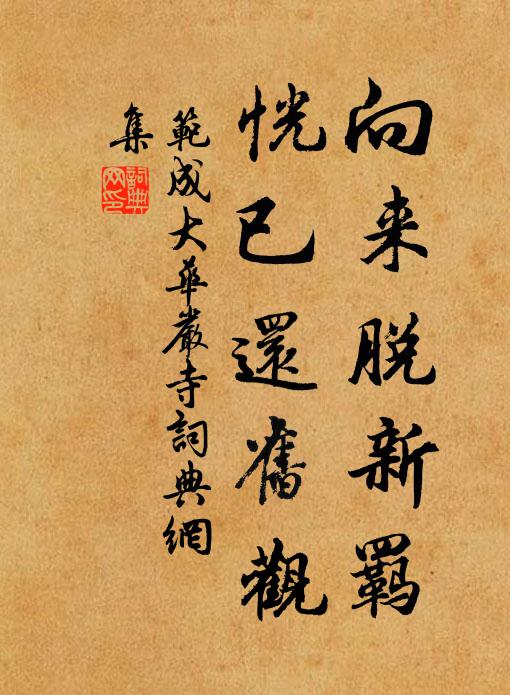 向来脱新羁
恍已還舊觀
範成大華嚴寺詞典網
集
詞典
网印